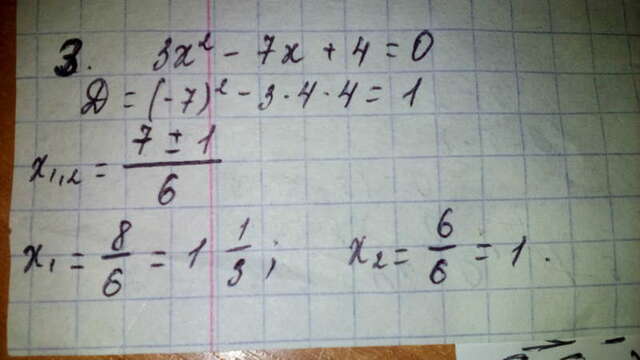 3. 3x² - 7x + 4 = 0
Д = (-7)² - 3 · 4 · 4 = 1
x₁,₂ = (7 ± 1)/6
x₁ = 8/6 = 1 1/3; x₂ = 6/6 = 1.